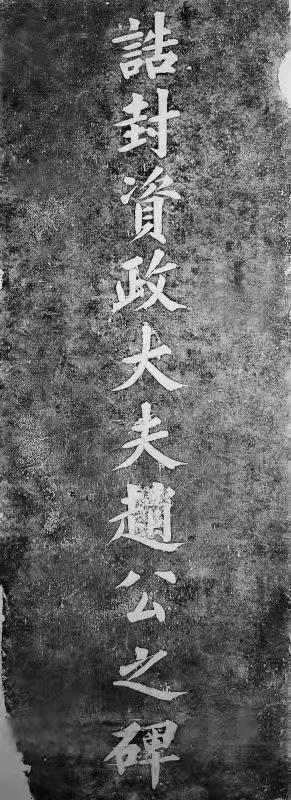 誥封資政大夫趙公之碑